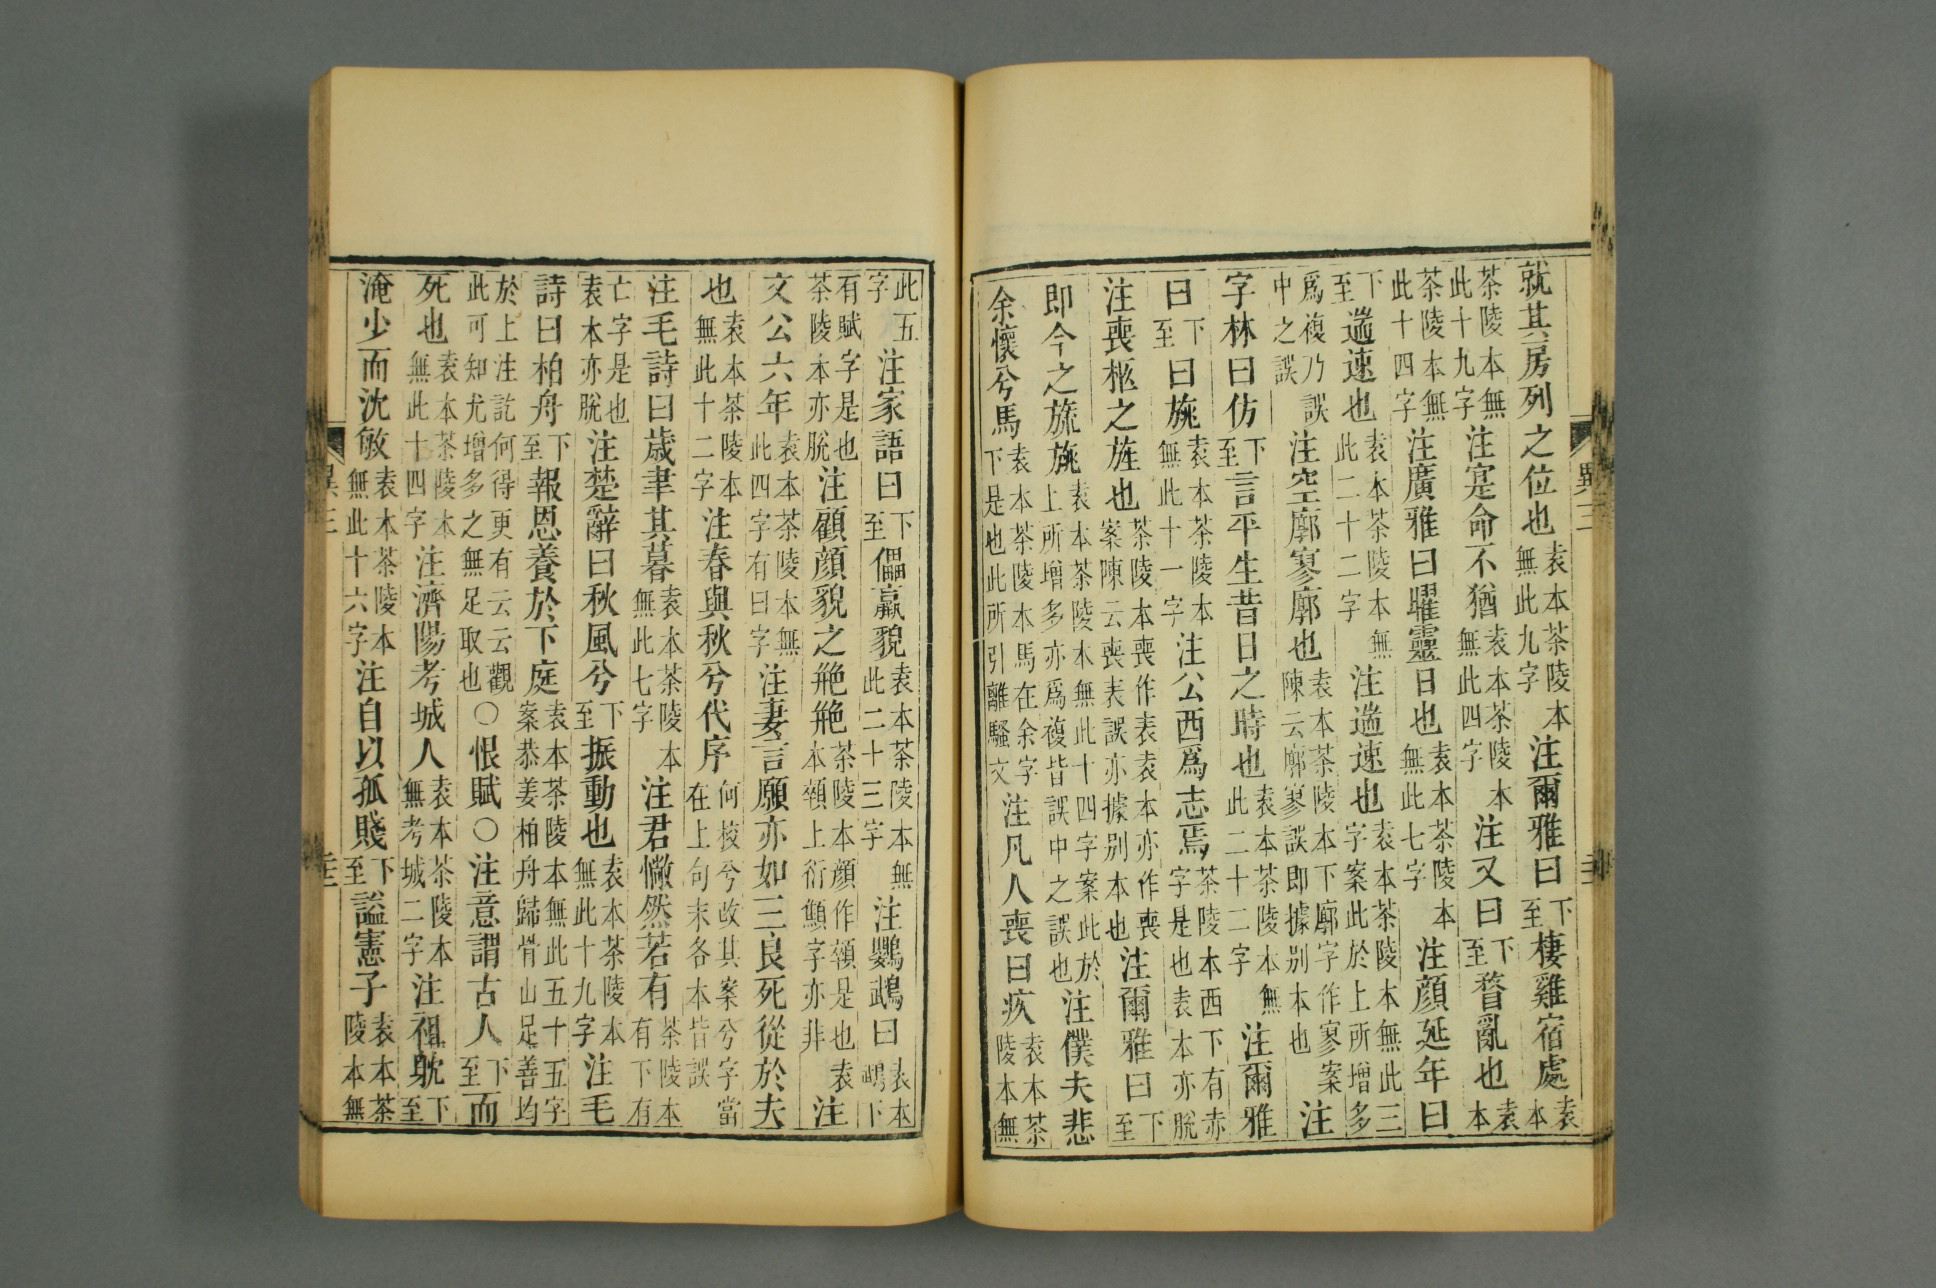 就其房列之位也袁本茶陵本無此九字注爾雅曰下至棲雞宿處袁本
茶陵本無此十九字注寔命不猶袁本茶陵本無此四字注又曰下至瞀亂也袁本
茶陵本無此十四字注廣雅曰曜靈日也袁本茶陵本無此七字注顔延年曰
下至遄速也袁本茶陵本無此二十二字注遄速也袁本茶陵本無此三字案此於上所增多
爲複乃誤中之誤注空廓寥廓也袁本茶陵本下廓字作寥案陳云廓寥誤即據别本也注
字林曰仿下至言平生昔日之時也袁本茶陵本無此二十二字注爾雅
曰下至曰旐袁本茶陵本無此十一字注公西爲志焉茶陵本西下有赤字是也袁本亦脫
注喪柩之旌也茶陵本喪作表袁本亦作喪案陳云喪表誤亦據别本也注爾雅曰下至
即今之旐旐袁本茶陵本無此十四字案此於上所增多亦爲複皆誤中之誤也注僕夫悲
余懷兮馬袁本茶陵本馬在余字下是也此所引離騷文注凡人喪曰疚袁本茶陵本無
此五字注家語曰下至儡羸貌袁本茶陵本無此二十三字注鸚鵡曰袁本鵡下
有賦字是也茶陵本亦脫注顧顔貌之艴艴茶陵本顔作頩是也袁本頩上衍顩字亦非注
文公六年袁本茶陵本無此四字有曰字注妻言願亦如三良死從於夫
也袁本茶陵本無此十二字注春與秋兮代序何校兮改其案兮字當在上句末各本皆誤
注毛詩曰歲聿其暮袁本茶陵本無此七字注君憿然若有茶陵本有下有
亡字是也袁本亦脫注楚辭曰秋風兮下至振動也袁本茶陵本無此十九字注毛
詩曰柏舟下至報恩養於下庭袁本茶陵本無此五十五字案恭姜柏舟歸骨山足善均
於上注訖何得更有云云觀此可知尤增多之無足取也○恨賦○注意謂古人下至而
死也袁本茶陵本無此十四字注濟陽考城人袁本茶陵本無考城二字注祖躭下至
淹少而沈敏袁本茶陵本無此十六字注自以孤賤下至謚憲子袁本茶陵本無
異三